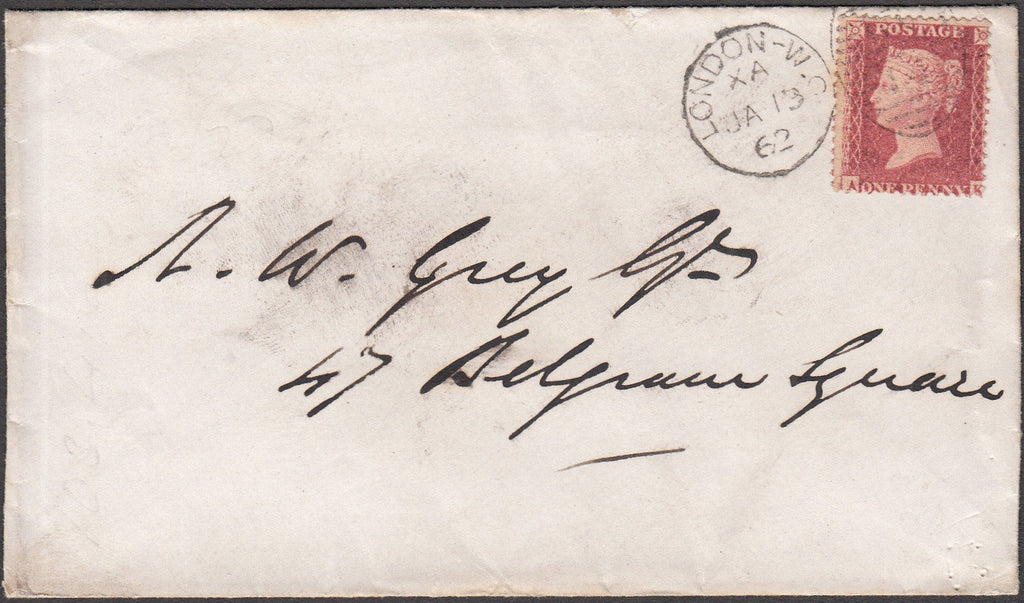 LONDON-W.C
XA
JA 13
62
POSTAGE
ONE PENNY
A K
A. W. Grey Esqr
47 Belgrave Square